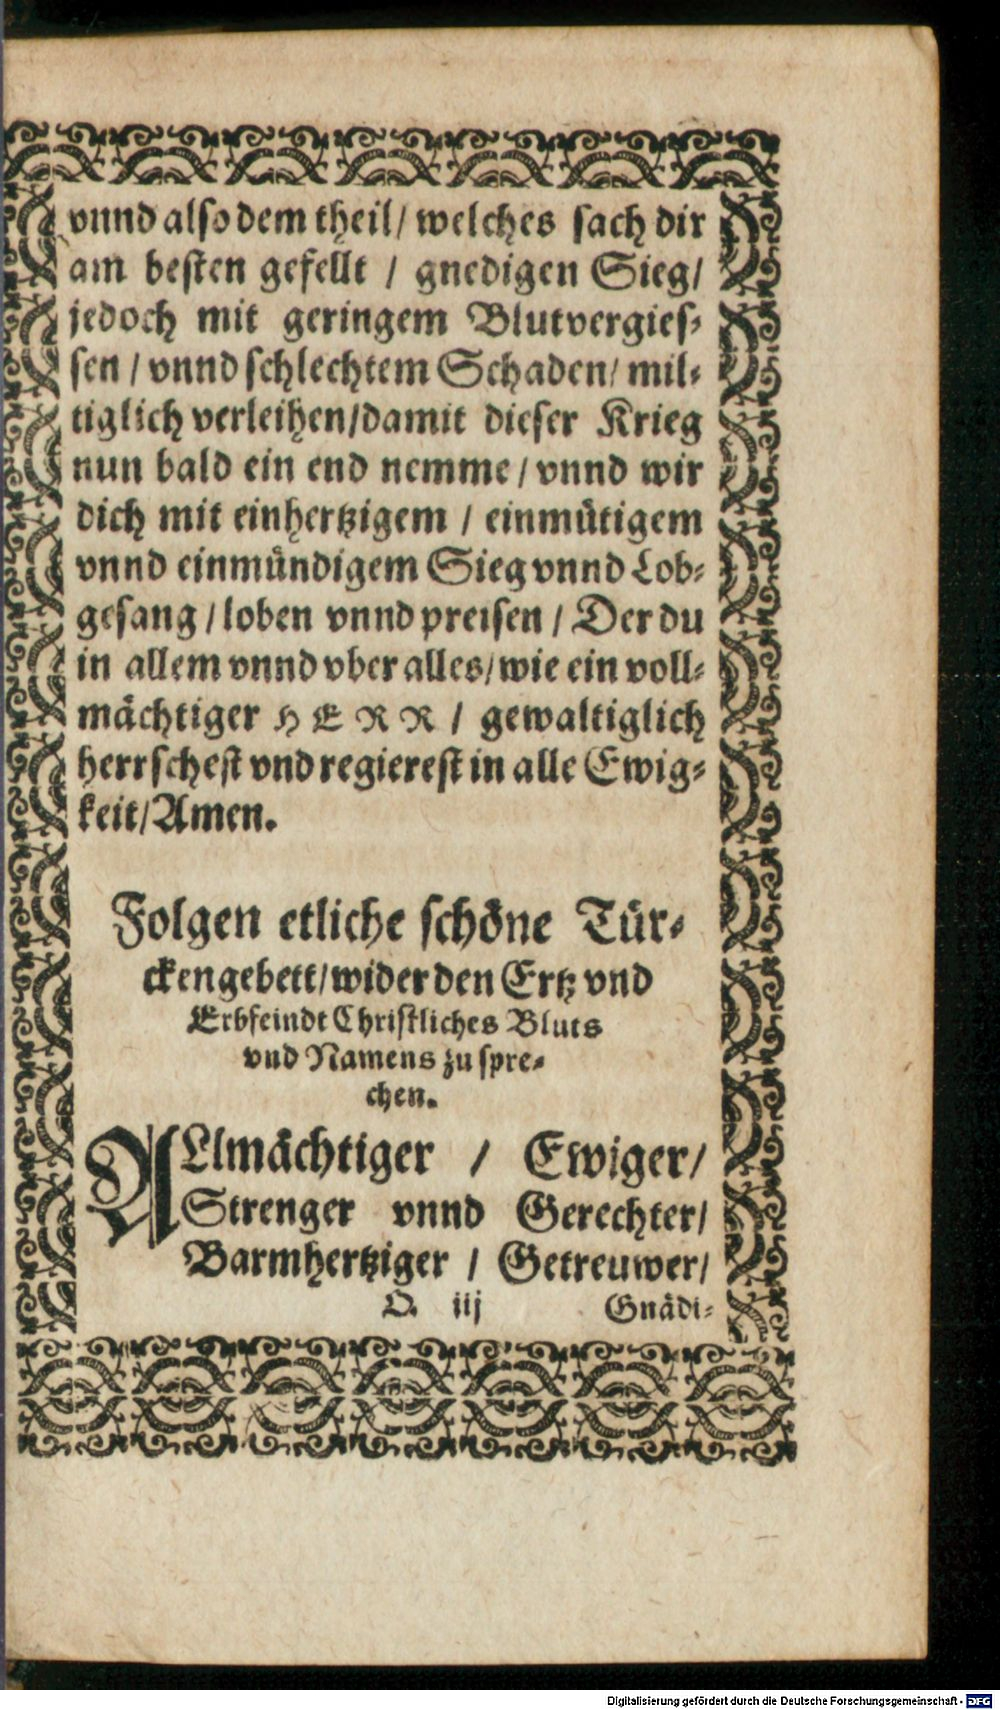 vnnd also dem theil/ welches sach dir
am besten gefellt / gnedigen Sieg/
jedoch mit geringem Blutvergies-
sen / vnnd schlechtem Schaden/ mil-
tiglich verleihen/damit dieser Krieg
nun bald ein end nemme / vnnd wir
dich mit einhertzigem / einmütigem
vnnd einmündigem Sieg vnnd Lob-
gesang / loben vnnd preisen / Der du
in allem vnnd vber alles/ wie ein voll-
mächtiger HERR / gewaltiglich
herrschest vnd regierest in alle Ewig-
keit/Amen.
Folgen etliche schöne Tür-
ckengebett/wider den Ertz vnd
Erbfeindt Christliches Bluts
vnd Namens zu spre-
chen.
ALlmächtiger / Ewiger/
Strenger vnnd Gerechter/
Barmhertziger / Getreuwer/
O. iij Gnädi-
Digitalisierung gefördert durch die Deutsche Forschungsgemeinschaft - DFG